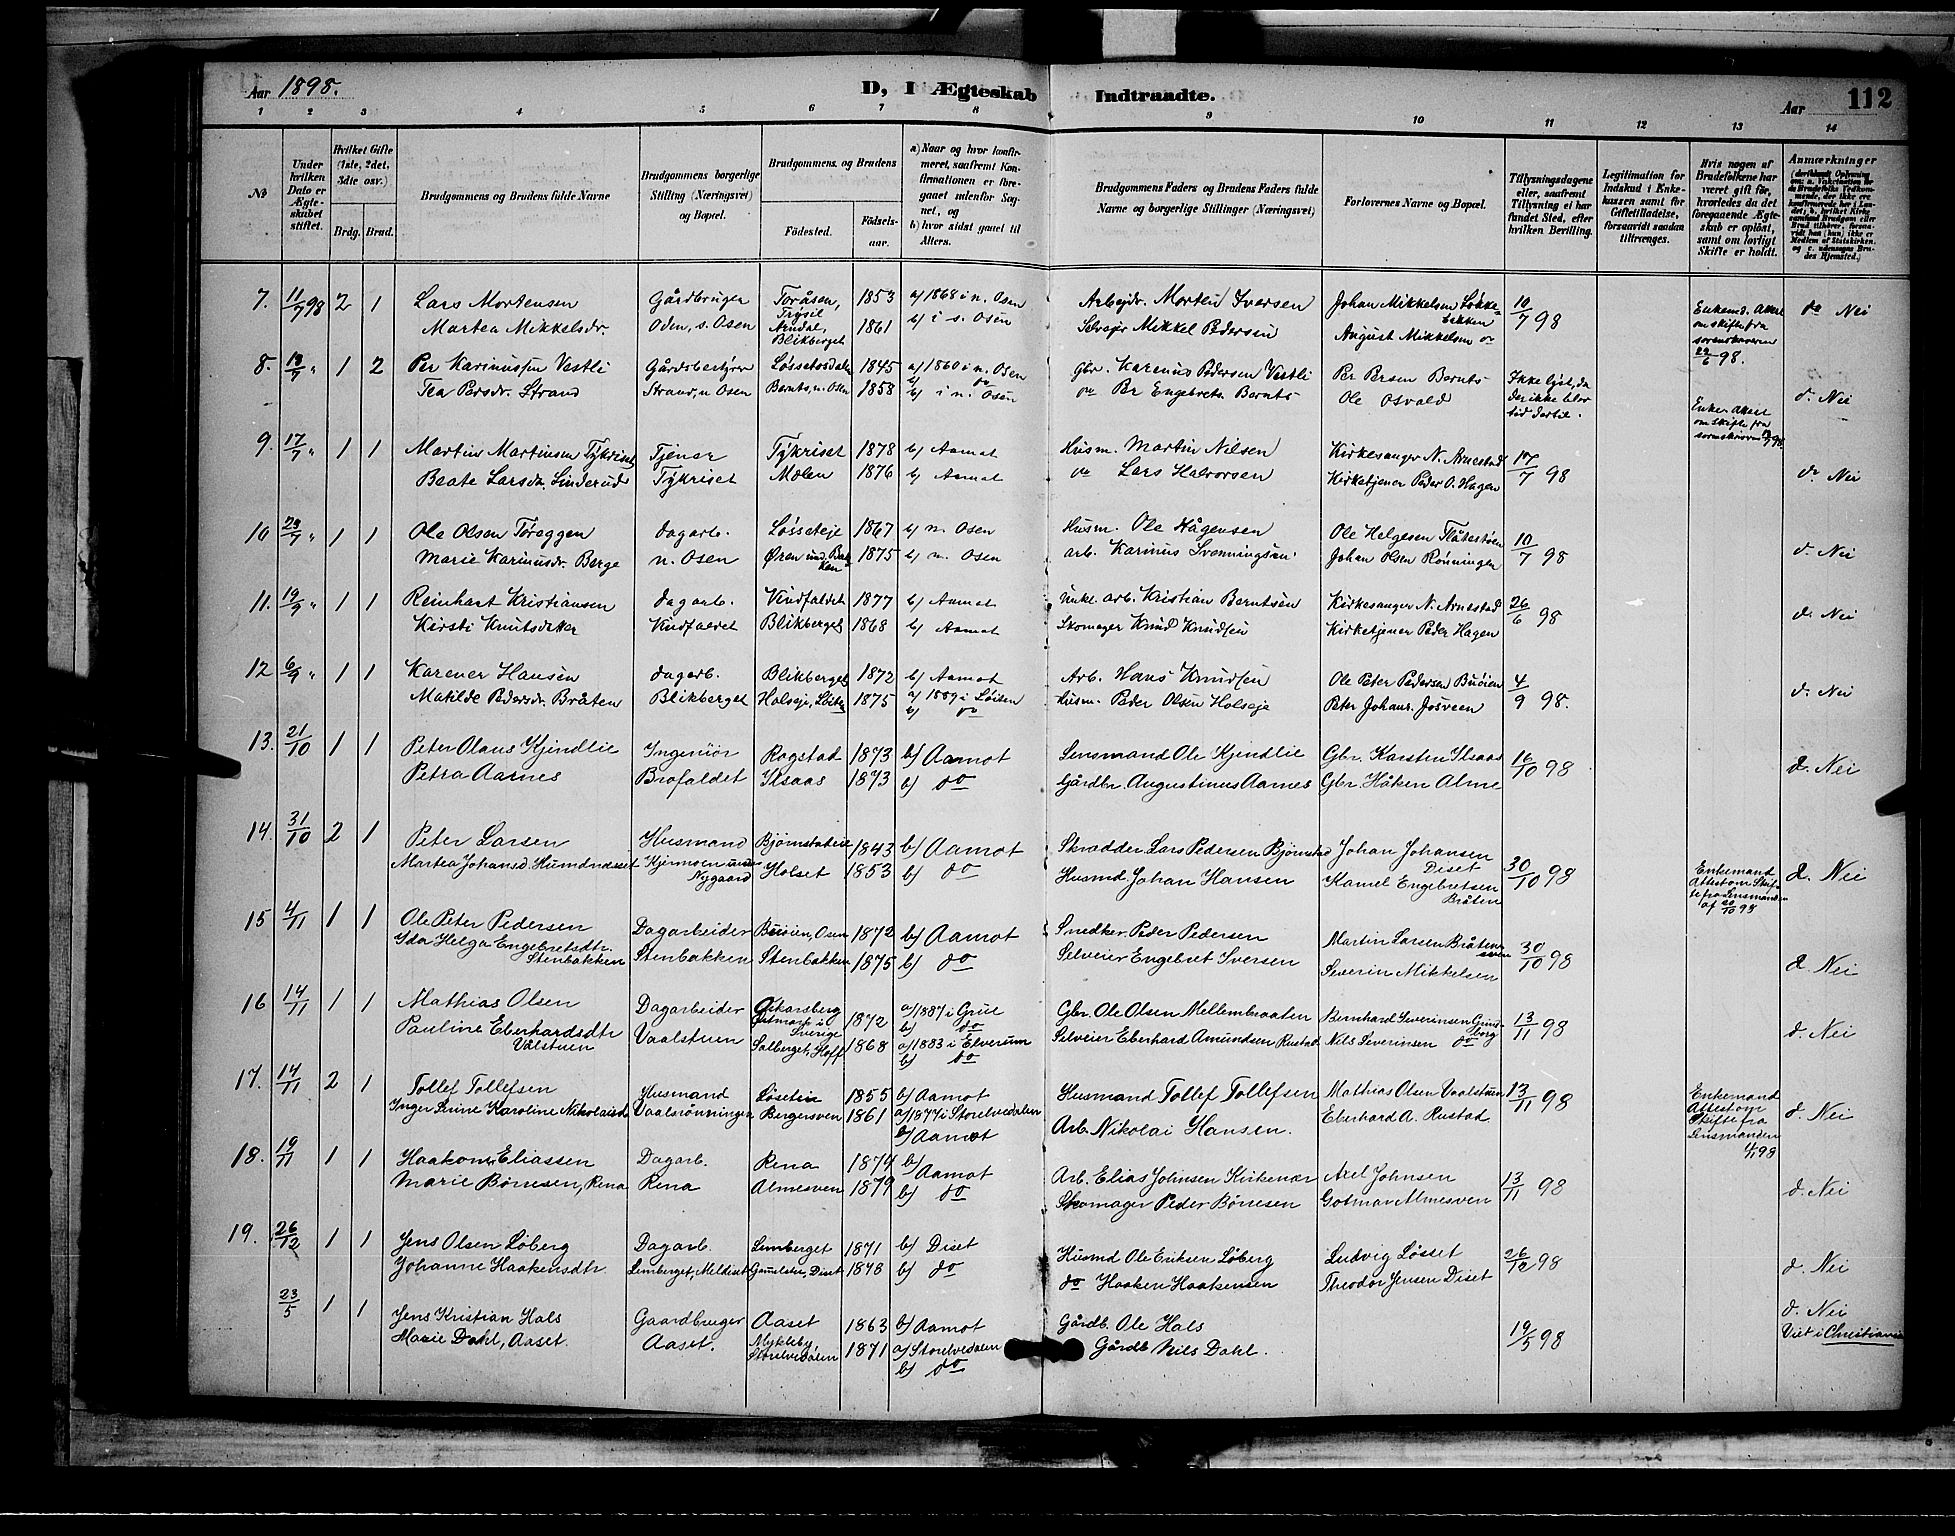 Aar 1898.
D, I Ægteskab Indtraadte.
Aar
112
1 2 3 4 5 6 7 8 9 10 11 12 13 14
№
Under hvilken Dato er Ægteskabet stiftet.
Hvilket Gifte (1ste, 2det, 3die osv.)
Brdg. Brud.
Brudgommens og Brudens fulde Navne
Brudgommens borgerlige Stilling (Næringsvei) og Bopæl.
Brudgommens og Brudens
Fødested. Fødselsaar.
a) Naar og hvor konfirmeret, saafremt Konfirmationen er foregaaet udenfor Sognet, og
b) hvor sidst gaaet til Alters.
Brudgommens Faders og Brudens Faders fulde Navne og borgerlige Stillinger (Næringsvei)
Forlovernes Navne og Bopæl.
Tillysningsdagene eller, saafremt Tillysning ei har fundet Sted, efter hvilken Bevilling.
Legitimation for Indskud i Enkekassen samt for Giftetilladelse, forsaavidt saadan tiltrænges.
Hvis nogen af Brudefolkene har været gift før, hvorledes da det foregaaende Ægteskab er opløst, samt om lovligt Skifte er holdt.
Anmærkninger
7. 11/7 98 2 1 Lars Mortensen Gårdbruger Toråsen, Trysil 1853 a) 1868 i n. Osen Arbejdr. Morten Iversen Johan Mikkelsen Løkkebakken 10/7 98 Enkemd. Attest om skifte fra sorenskriveren 22/6 98. d. Nei
Martea Mikkelsdr. Oden, s. Osen Arndal, Blikberget 1861 b) i s. Osen Selvejer Mikkel Pedersen August Mikkelsen do
8. 1 2 Per Karinussen Vestli Gårdsbestyrer Løssetsdalen 1845 a) 1860 i n. Osen Gbr. Karinus Pedersen Vestli Per Persen Bernts- Ikke lyst, da der ikke blev tid dertil. Enke. Attest om skifte fra sorenskriveren d. Nei
Tea Persdr. Strand Strand, n. Osen Bernts, n. Osen 1858 b) i n. Osen do Per Engebrets. Bernts- Ole Osvald
9. 17/7 " 1 1 Martin Martinsen Tykriset Tjener Tykriset 1878 b) Aamot Husm. Martin Nilsen Kirkesanger N. Arnestad 17/7 98 d. Nei
Beate Larsdr. Linderud Tykriset Molen 1876 b) Aamot do Lars Halvorsen Kirketjener Peder O. Hagen
10 " 1 1 Ole Olsen Toreggen Dagarb. Løsseteje 1867 b) n. Osen Husm. Ole Hågensen Ole Helgesen Flåtestøen 10/7 98 d. Nei
Marie Karinusdr. Berge n. Osen Øren 1875 b) n. Osen arb. Karinus Svenningsen. Johan Olsen Rønningen
11. 19/9 " 1 1 Reinhart Kristiansen Dagarb. Vindfaldet 1877 b) Aamot arb. Kristian Berntsen Kirkesanger N. Arnestad 26/6 98 d. Nei
Kirsti Knutsdatter Vindfaldet Blikberget 1868 b) Aamot Skomager Knud Knudsen Kirketjener Peder Hagen
12 6/9 " 1 1 Karener Hansen Dagarb. Blikberget 1872 b) Aamot Arb. Hans Knudsen Ole Peter Pedersen Buøien 4/9 98. d. Nei
Matilde Pedersdr. Bråten Blikberget Holseje, Løiten 1875 a) 1889 i Løiten b) do Husm. Peder Olsen Holseje Peter Johans. Josveen
13. 21/10 1 1 Peter Olaus Kjindlie Ingeniør Rogstad 1873 b) Aamot Lensmand Ole Kjindlie Gbr. Karsten Ilsaas 16/10 98 d. Nei
Petra Aarnes Brofaldet Ilsaas 1873 b) do Gårdbr. Augustinus Aarnes Gbr. Håken Alme
14. 31/10 2 1 Peter Larsen Husmand Bjørnstadeie 1843 b) Aamot Skrædder Lars Pedersen Bjørnstad Johan Johansen Diset 30/10 98 Enkemand Attest om Skifte fra Lensmanden af 20/10 98 d. Nei
Martea Johansd. Humdnæsset Kjernmoen under Nygaard Holset 1853 b) do Husmd. Johan Hansen Kamel Engebretsen Bråten
15 4/11 1 1 Ole Peter Pedersen Dagarbeider Buøien, Osen 1872 b) Aamot Snedker. Peder Pedersen Martin Larsen Bråtensveen 30/10 98 d. Nei
Yda Helga Engebretsdtr. Stenbakken Stenbakken Stenbakken 1875 b) do Selveier Engebret Iversen Severin Mikkelsen
16 14/11 1 1 Mathias Olsen Dagarbeider i Sverige 1872 a) 1887 i Grue b) do Gbr. Ole Olsen Mellembraaten Bernhard Severinsen Grindsborg 13/11 98 d. Nei
Pauline Eberhardsdtr Valstuen Vaalstuen Salberget, Hoff 1868 a) 1883 i Elverum b) do Selveier Eberhard Amundsen Rustad Nils Severinsen do
17. 14/11 2 1 Tollef Tollefsen Husmand Løsetie 1855 b) Aamot Husmand Tollef Tollefsen Mathias Olsen Vaalstuen 13/11 98 Enkemand Attest om Skifte fra Lensmanden 98 d. Nei
Inger Serine Karoline Nikolaisd. Vaalsrønningen Bergersveen 1861 a) 1877 i Storelvedalen b) Aamot Arb. Nikolai Hansen. Eberhard A. Rustad
18. 19/11 1 1 Haakon Eliassen Dagarb. Rena 1874 b) Aamot Arb. Elias Johnsen Kirkenær Axel Johnsen 13/11 98 d. Nei
Marie Bønesen, Rena Rena Almesven 1879 b) do Skomager Peder Bønesen Gotmar Almesven
19. 26/12 1 1 Jens Olsen Løberg Dagarb. Lemberget 1871 b) Diset Husmd Ole Eriksen Løberg Ludvig Løsset 26/12 98 d. Nei
Johanne Haakensdtr. Lemberget, Meldiset Gamelstu, Diset 1878 b) do do Haaken Haakensen Theodor Jensen Diset
23/5 1 1 Jens Kristian Hals Gaardbruger Aaset 1863 b) Aamot Gårdb. Ole Hals 19/5 98 d. Nei Viet i Christiania
Marie Dahl, Aaset. Aaset. Mykleby, Storelvedalen 1871 a) Storelvedalen b) do Gårdb. Nils Dahl.